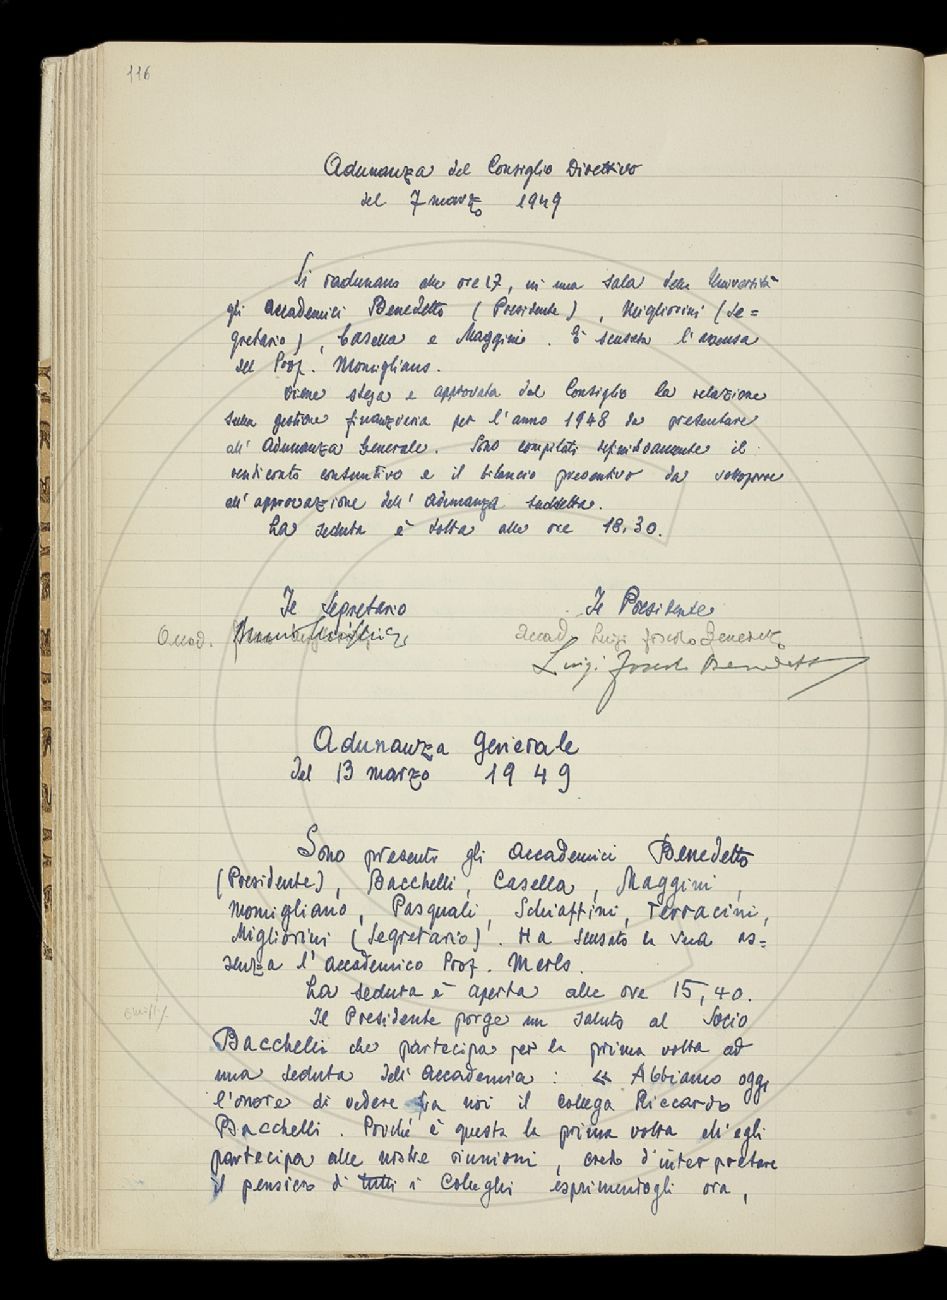 116
Adunanza del Consiglio Direttivo
del 7 marzo 1949
Si radunano alle ore 17, in una sala della Università
gli accademici Benedetto (Presidente), Migliorini (Se=
gretario), Casella e Maggini. È scusata l'assenza
del Prof. Momigliano.
Viene stesa e approvata dal Consiglio la relazione
sulla gestione finanziaria per l'anno 1948 da presentare
all'Adunanza Generale. Sono compilati definitivamente il
rendiconto consuntivo e il bilancio preventivo da sottoporre
all'approvazione dell'Adunanza suddetta.
La seduta è tolta alle ore 18,30.
Il Segretario Il Presidente
Accad. Bruno Migliorini accad. Luigi Foscolo Benedetto
Luigi Foscolo Benedetto
Adunanza Generale
del 13 marzo 1949
Sono presenti gli accademici Benedetto
(Presidente), Bacchelli, Casella, Maggini,
Momigliano, Pasquali, Schiaffini, Terracini,
Migliorini (Segretario). Ha scusato la sua as=
senza l'accademico Prof. Merlo.
La seduta è aperta alle ore 15,40.
Il Presidente porge un saluto al Socio
Bacchelli che partecipa per la prima volta ad
una seduta dell'Accademia: « Abbiamo oggi
l'onore di vedere fra noi il collega Riccardo
Bacchelli. Poiché è questa la prima volta ch'egli
partecipa alle nostre riunioni, credo d'interpretare
il pensiero di tutti i Colleghi esprimendogli ora,